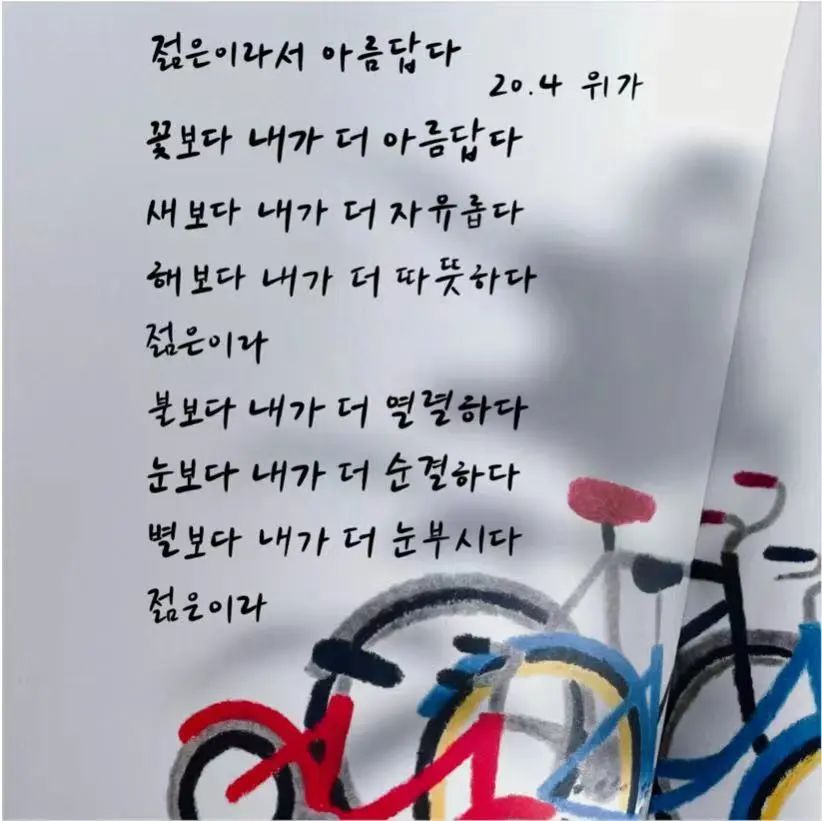 젊은이라서 아름답다
20.4 위가
꽃보다 내가 더 아름답다
새보다 내가 더 자유롭다
해보다 내가 더 따뜻하다
젊은이라
불보다 내가 더 열렬하다
눈보다 내가 더 순결하다
별보다 내가 더 눈부시다
젊은이라